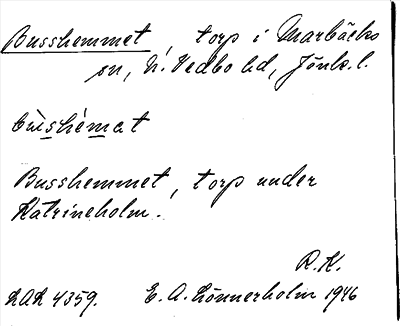 Busshemmet, torp i Marbäcks
sn, N. Vedbo hd, Jönk. l.
bùs̲hém̲at
Busshemmet, torp under
Katrineholm.
R.K.
KAK 4359. E. A. Lönnerholm 1946